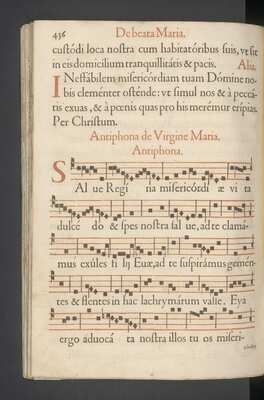 436 De beata Maria.
custódi loca nostra cum habitatóribus suis, vt sit
in eis domicilium tranquillitátis & pacis. Alia.
INeffábilem misericórdiam tuam Dómine no-
bis cleménter osténde: vt simul nos & à peccá-
tis exuas, & à pœnis quas pro his merémur erípias.
Per Christum.
Antiphona de Virgine Maria.
Antiphona.
SAl ue Regí na misericórdi æ vi ta
dulcé do & spes nostra sal ue, ad te clama-
mus exúles fi lij Euæ, ad te suspirámus gemén-
tes & flentes in hac lachrymárum valle. Eya
ergo aduocá ta nostra illos tu os miseri-